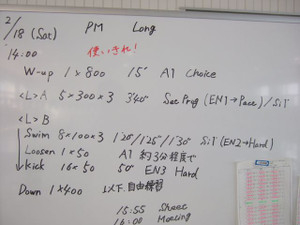 2/18 (Sat) PM Long
14:00 使いきれ!
W-up 1×800 15' A1 Choice
<L>A 5×300×3 3'40" Set Prog (EN1→Pace) / S1T
<L>B
Swim 8×100×3 1'20"/1'25"/1'30" S1T (EN2→Hard)
Loosen 1×50 A1 約3分程度で
Kick 16×50 50" EN3 Hard
Down 1×400 以下、自由練習
15:55 Sheet
16:00 Meeting